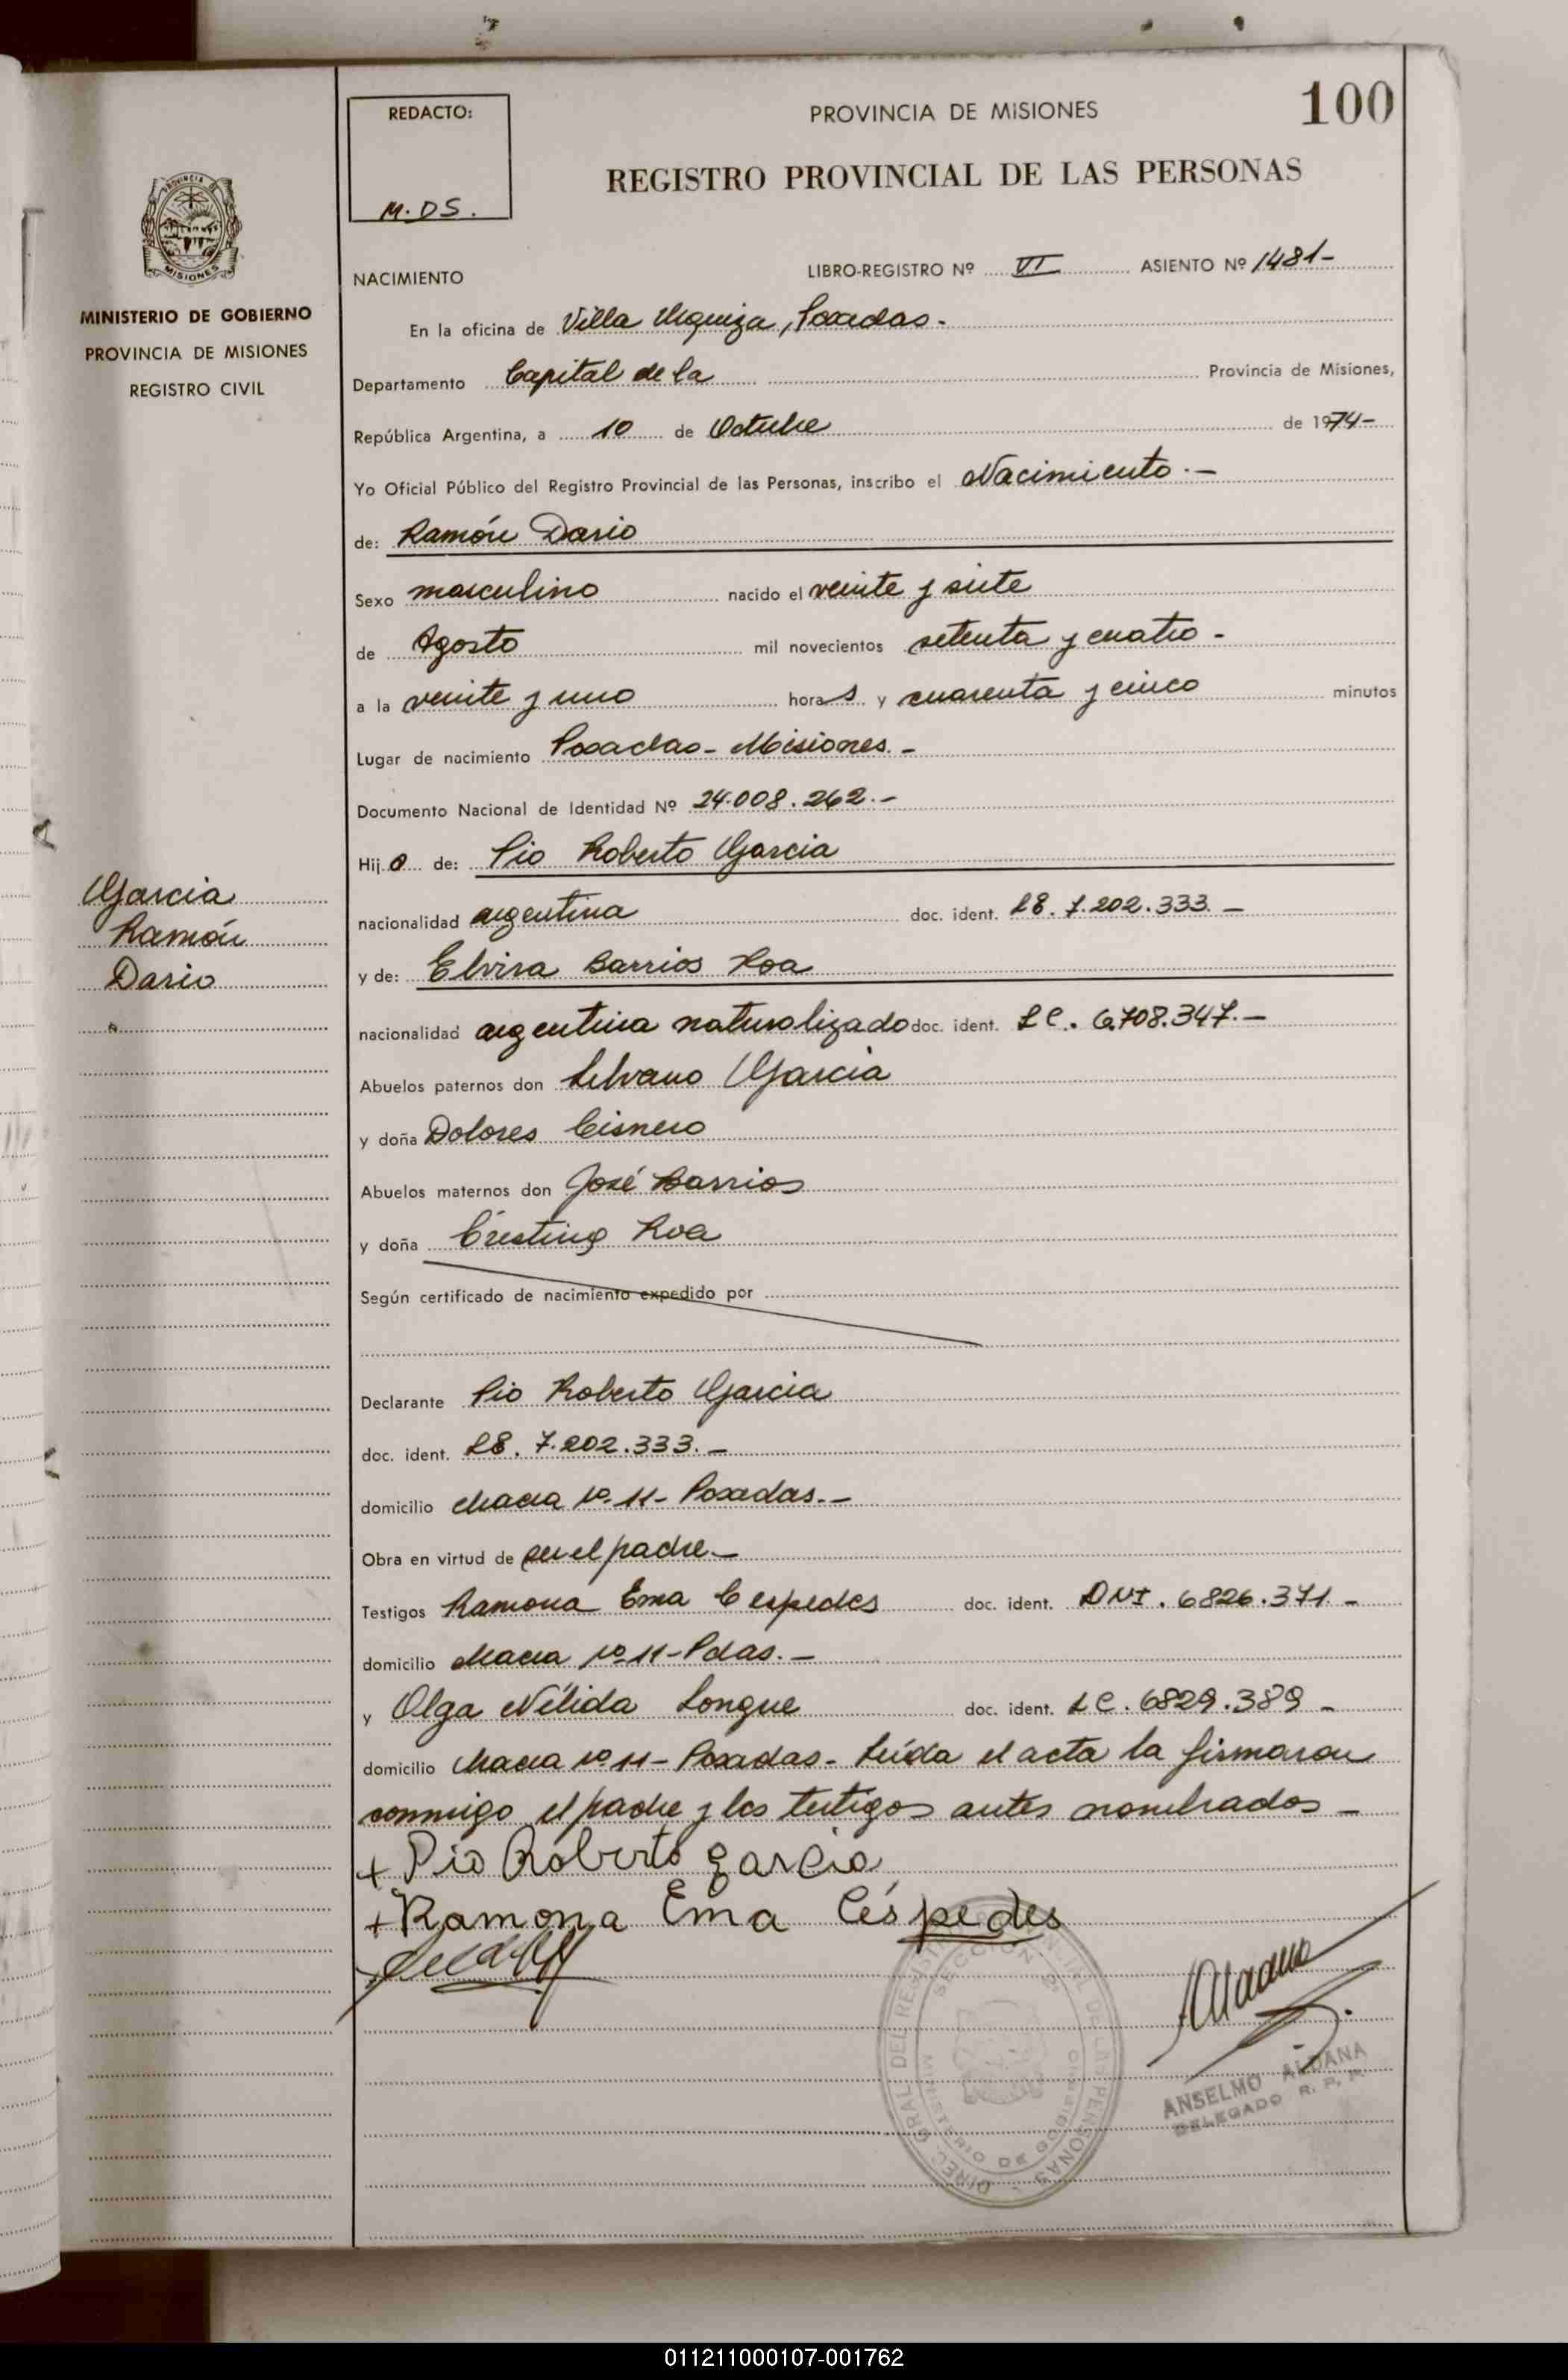 100
REDACTO:
M.DS.
PROVINCIA DE MISIONES
REGISTRO PROVINCIAL DE LAS PERSONAS
PROVINCIA DE
MISIONES
MINISTERIO DE GOBIERNO
PROVINCIA DE MISIONES
REGISTRO CIVIL
NACIMIENTO
LIBRO-REGISTRO Nº VI ASIENTO Nº 1481-
En la oficina de Villa Urquiza, Posadas.-
Departamento Capital de la Provincia de Misiones,
República Argentina, a 10 de Octubre de 1974-
Yo Oficial Público del Registro Provincial de las Personas, inscribo el Nacimiento.-
de: Ramón Dario
Sexo masculino nacido el veinte y siete
de Agosto mil novecientos setenta y cuatro-
a la veinte y uno horas y cuarenta y cinco minutos
Lugar de nacimiento Posadas- Misiones.-
Documento Nacional de Identidad Nº 24.008.262.-
Hijo de: Pio Roberto Garcia
Garcia
Ramón
Dario
nacionalidad argentina doc. ident. LE. 7.202.333.-
y de: Elvira Barrios Roa
nacionalidad argentina naturalizado doc. ident. LC. 6.708.347.-
Abuelos paternos don Silvano Garcia
y doña Dolores Cisnero
Abuelos maternos don José Barrios
y doña Roa
Según certificado de nacimiento expedido por
Declarante Pio Roberto Garcia
doc. ident. LE. 7.202.333.-
domicilio Chacra Nº 11- Posadas.-
Obra en virtud de ser el padre-
Testigos Ramona Ema Cespedes doc. ident. DNI. 6826.371.-
domicilio Chacra Nº 11- Pdas.-
y Olga Nélida Longue doc. ident. LC. 6829.389-
domicilio Chacra Nº 11- Posadas- Leída el acta la firmaron
conmigo el padre y los testigos antes nombrados-
+ Pio Roberto garcia
+ Ramona Ema Céspedes
Aldana
DIREC. GRAL DEL REGISTRO PROVINCIAL DE LAS PERSONAS
MINISTERIO DE GOBIERNO
ANSELMO ALDANA
DELEGADO R. P. P.
011211000107-001762